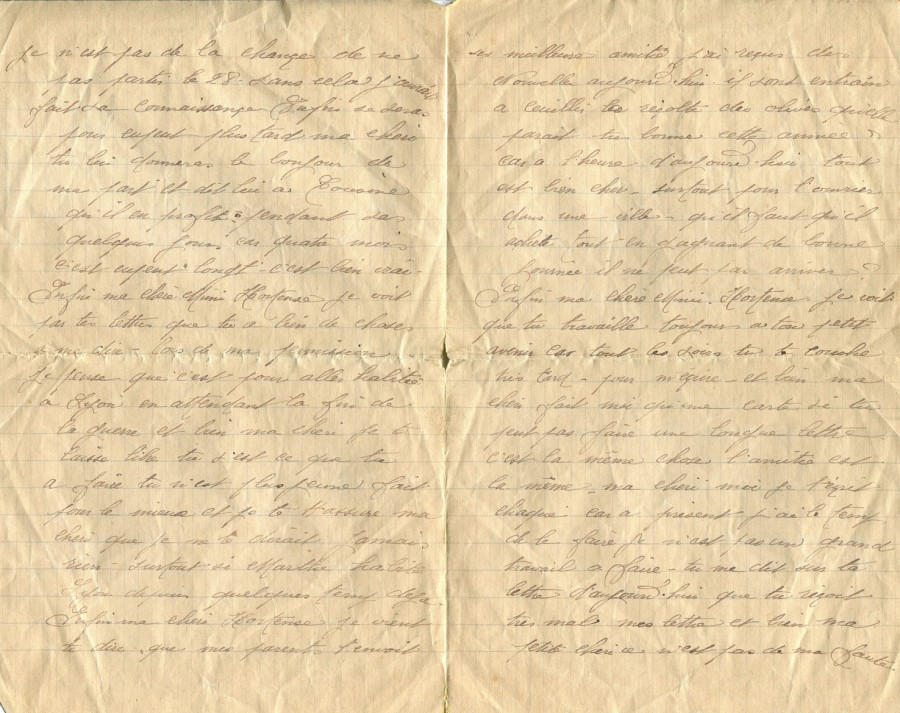 Je n'est pas de la change de ne
pas partir le 28. Sans cela j'aurai
fait sa connaissance Enfin se sera
pour plus tard ma cheri
tu lui donneras le bonjour de
ma part et dit lui a
qu'il en profite pendant ses
quelques jours car quatre mois
c'est c'est bien vrai.
Enfin ma chère Mimi Hortense je voit
par tes lettres que tu a bien de choses
a me dire lors de ma permission
Je pense que c'est pour aller habiter
a Lyon en attendant la fin de
la guerre et bien ma cheri je te
laisse libre tu s'est ce que tu
a faire tu n'est plus jeune fait
pour le mieux et je te rassure ma
cheri que je ne te dirait jamais
rien. Surtout si Marthe habite
Lyon depuis quelques temp deja.
Enfin ma cheri Hortense je vient
te dire que mes parents t'envoit
ses meilleures amitié j'ai reçus de
Nouvelle aujourd'hui il sont entrain
a ceuillir les récolte des olives qu'elle
parait tu bonne cette année
car a l'heure d'aujourd'hui tout
est bien cher. surtout pour l'ouvrier
dans une ville. qu'il faut qu'il
achete tout en gagnant de bonne
journée il ne peut pas arriver
Enfin ma chère Mimi Hortense je voit
que tu travaille toujours a ton petit
avenir car tout les soirs tu te couche
très tard. pour m'ecrire. et bien ma
cheri fait moi qu'une carte si tu
peut pas faire une longue lettre
c'est la même chose l'amitié est
la même. ma cheri moi je t'écrit
chaque car a present j'ai le temp
de le faire je n'est pas un grand
travail a faire. tu me dit sur ta
lettre d'aujourd'hui que tu reçoit
très mal mes lettre et bien ma
petite cherie ce n'est pas de ma faute.